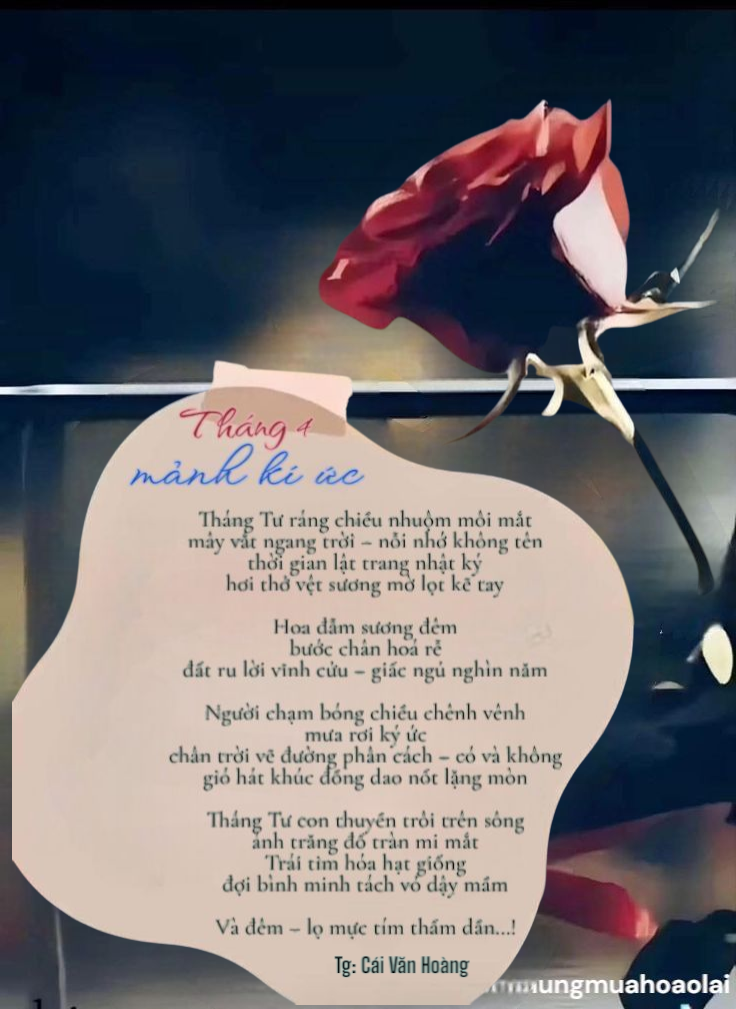 Tháng 4
mảnh kí ức
Tháng Tư ráng chiều nhuộm môi mắt
mây vắt ngang trời – nỗi nhớ không tên
thời gian lật trang nhật ký
hơi thở vệt sương mờ lọt kẽ tay
Hoa đẫm sương đêm
bước chân hoá rễ
đất ru lời vĩnh cửu – giấc ngủ nghìn năm
Người chạm bóng chiều chênh vênh
mưa rơi ký ức
chân trời vẽ đường phân cách – có và không
gió hát khúc đồng dao nốt lặng mòn
Tháng Tư con thuyền trôi trên sông
ánh trăng đổ tràn mi mắt
Trái tim hóa hạt giống
đợi bình minh tách vỏ dậy mầm
Và đêm – lọ mực tím thẫm dần...!
Tg: Cái Văn Hoàng
ungmuahoaolai